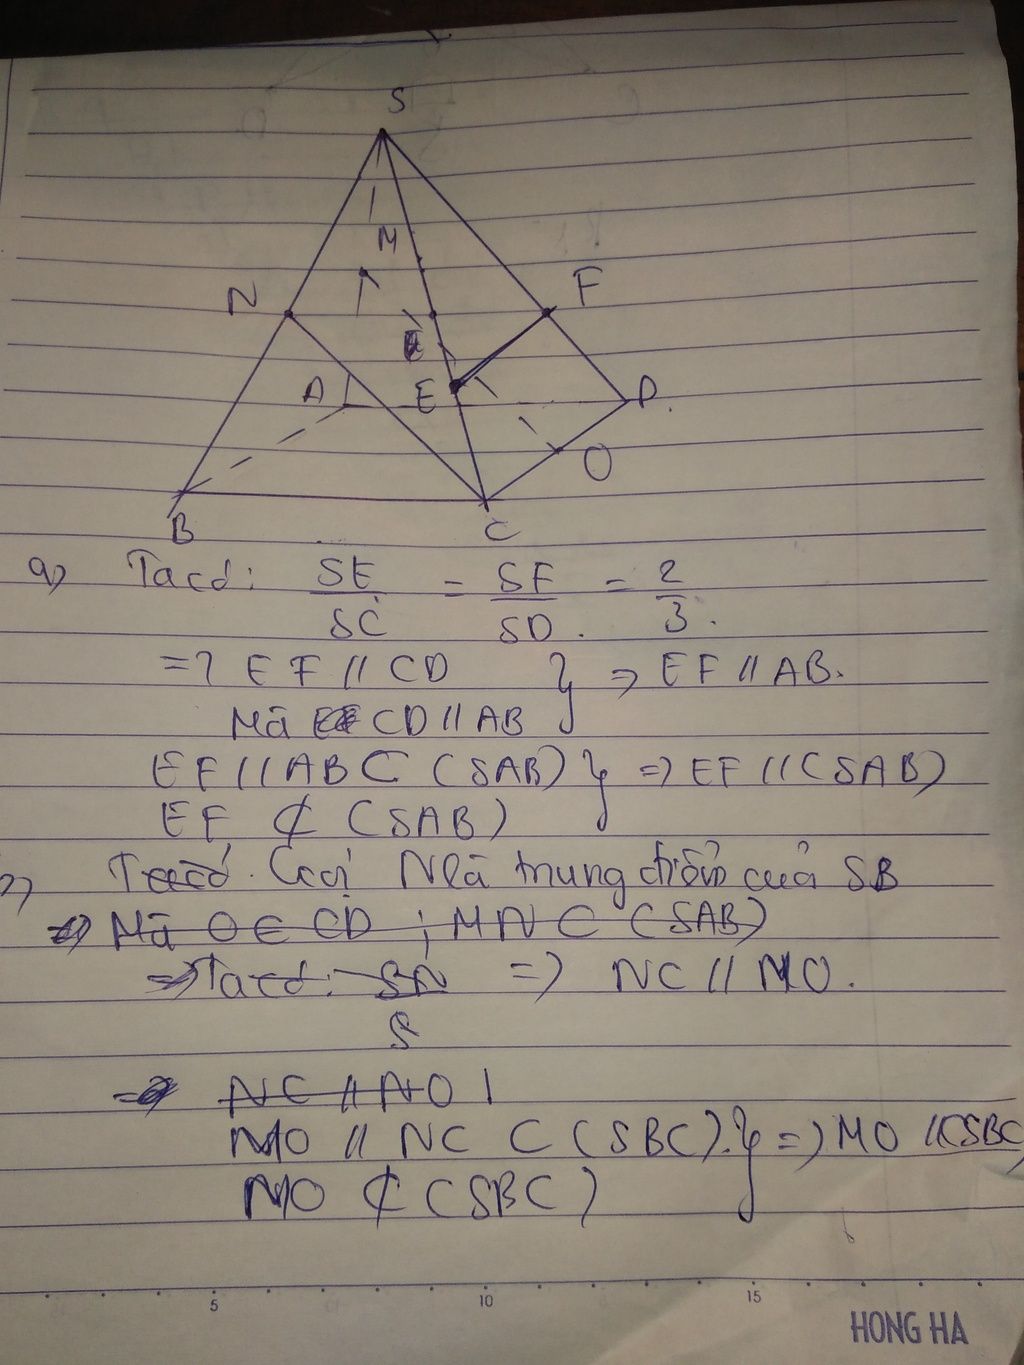 S
M
N
F
A
E
D
O
B
C
a) Ta có: SE/SC = SF/SD = 2/3.
=> EF // CD } => EF // AB.
Mà CD // AB
EF // AB ⊂ (SAB) } => EF // (SAB)
EF ⊄ (SAB)
Gọi N là trung điểm của SB
=> Mà O ∈ CD ; MN ⊂ (SAB)
=> Ta có: SN => NC // MO.
S
=> NC // NO
MO // NC ⊂ (SBC). } => MO // (SBC
MO ⊄ (SBC)
5 10 15
HONG HA